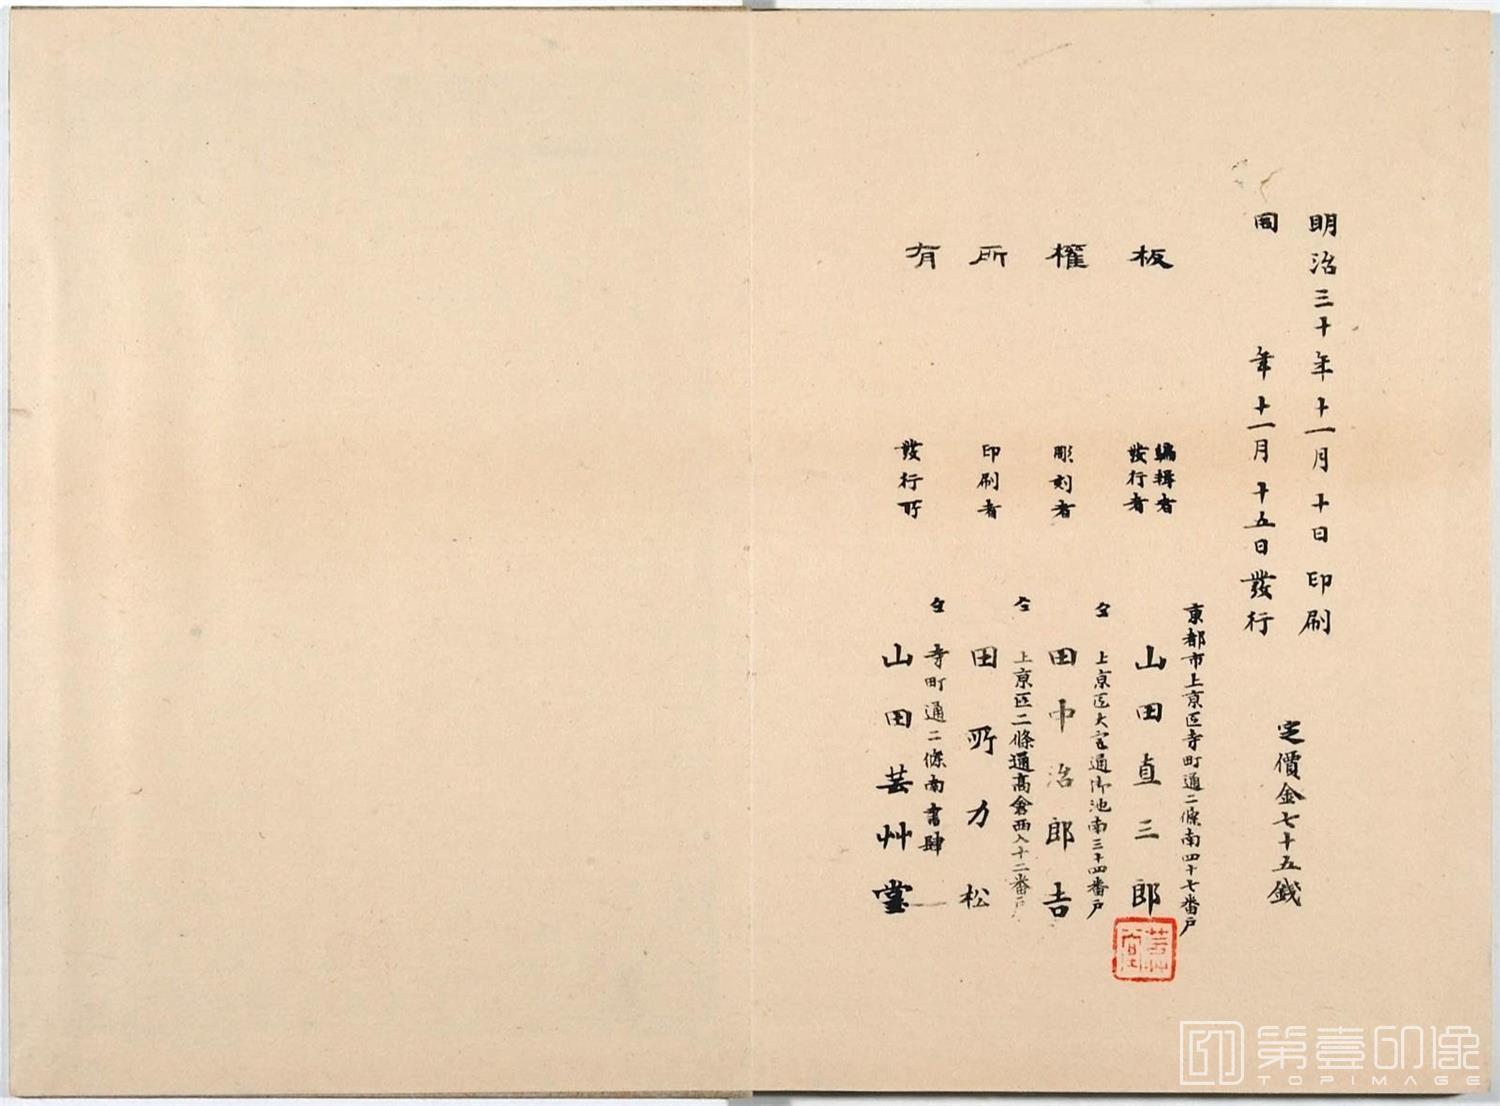 明治三十年十一月十日印刷
同　年十一月十五日發行
定價金七十五錢
板權所有
編輯者
發行者
京都市上京區寺町通二條南四十七番戸
山田直三郎
彫刻者
仝 上京區大宮通御池南三十四番戸
田中治郎吉
印刷者
仝 上京區二條通高倉西入十二番戸
田所力松
發行所
仝 寺町通二條南書肆
山田芸艸堂
芸艸堂
第壹印像
TOPIMAGE